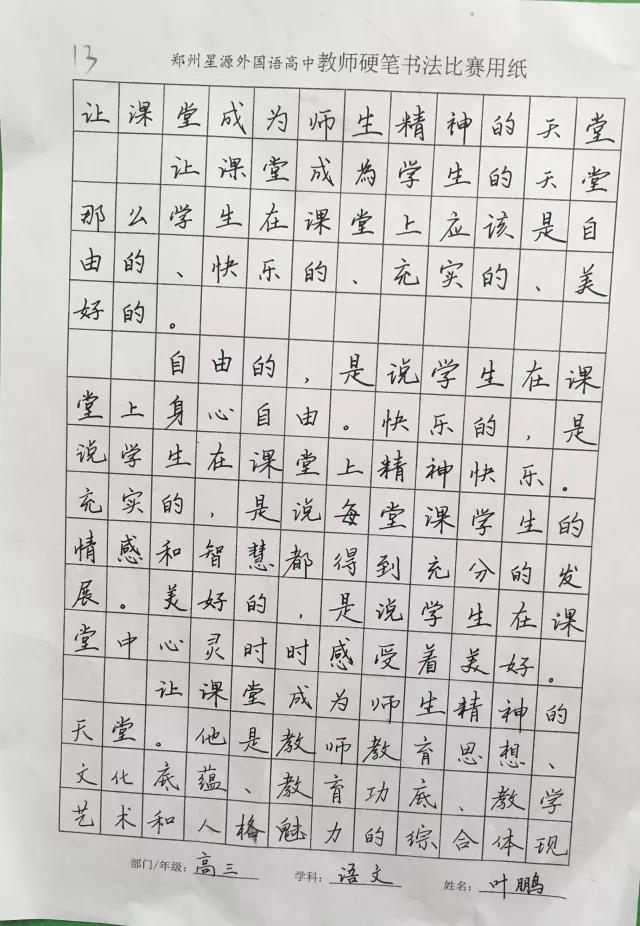 13
郑州星源外国语高中教师硬笔书法比赛用纸
让课堂成为师生精神的天堂
让课堂成為学生的天堂
那么学生在课堂上应该是自
由的、快乐的、充实的、美
好的。
自由的,是说学生在课
堂上身心自由。快乐的,是
说学生在课堂上精神快乐。
充实的,是说每堂课学生的
情感和智慧都得到充分的发
展。美好的,是说学生在课
堂中心灵时时感受着美好。
让课堂成为师生精神的
天堂。他是教师教育思想、
文化底蕴、教育功底、教学
艺术和人格魅力的综合体现
部门/年级:高三 学科:语文 姓名:叶鹏